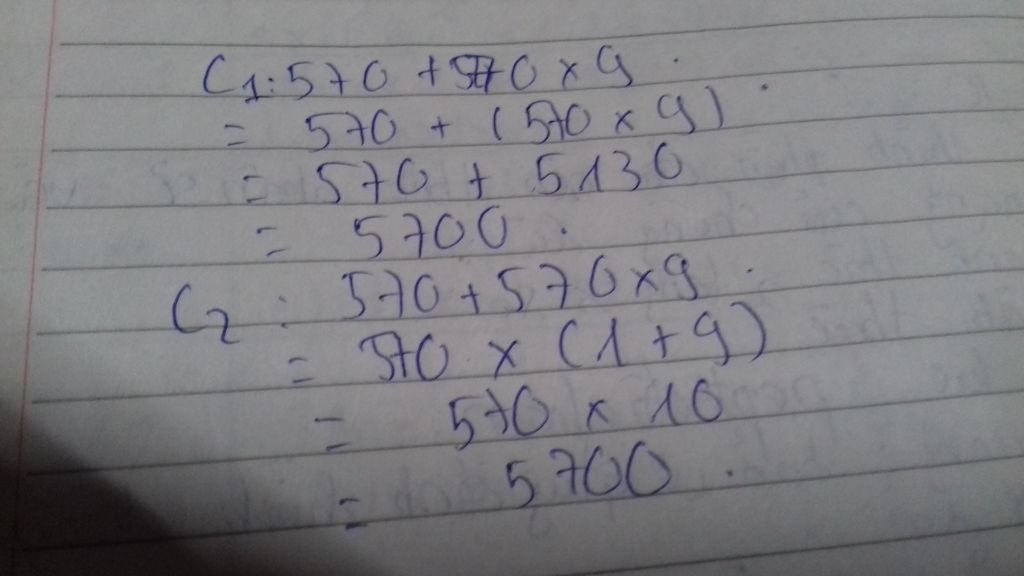 C1: 570 + 570 x 9
= 570 + (570 x 9)
= 570 + 5130
= 5700.
C2: 570 + 570 x 9.
= 570 x (1 + 9)
= 570 x 10
= 5700.